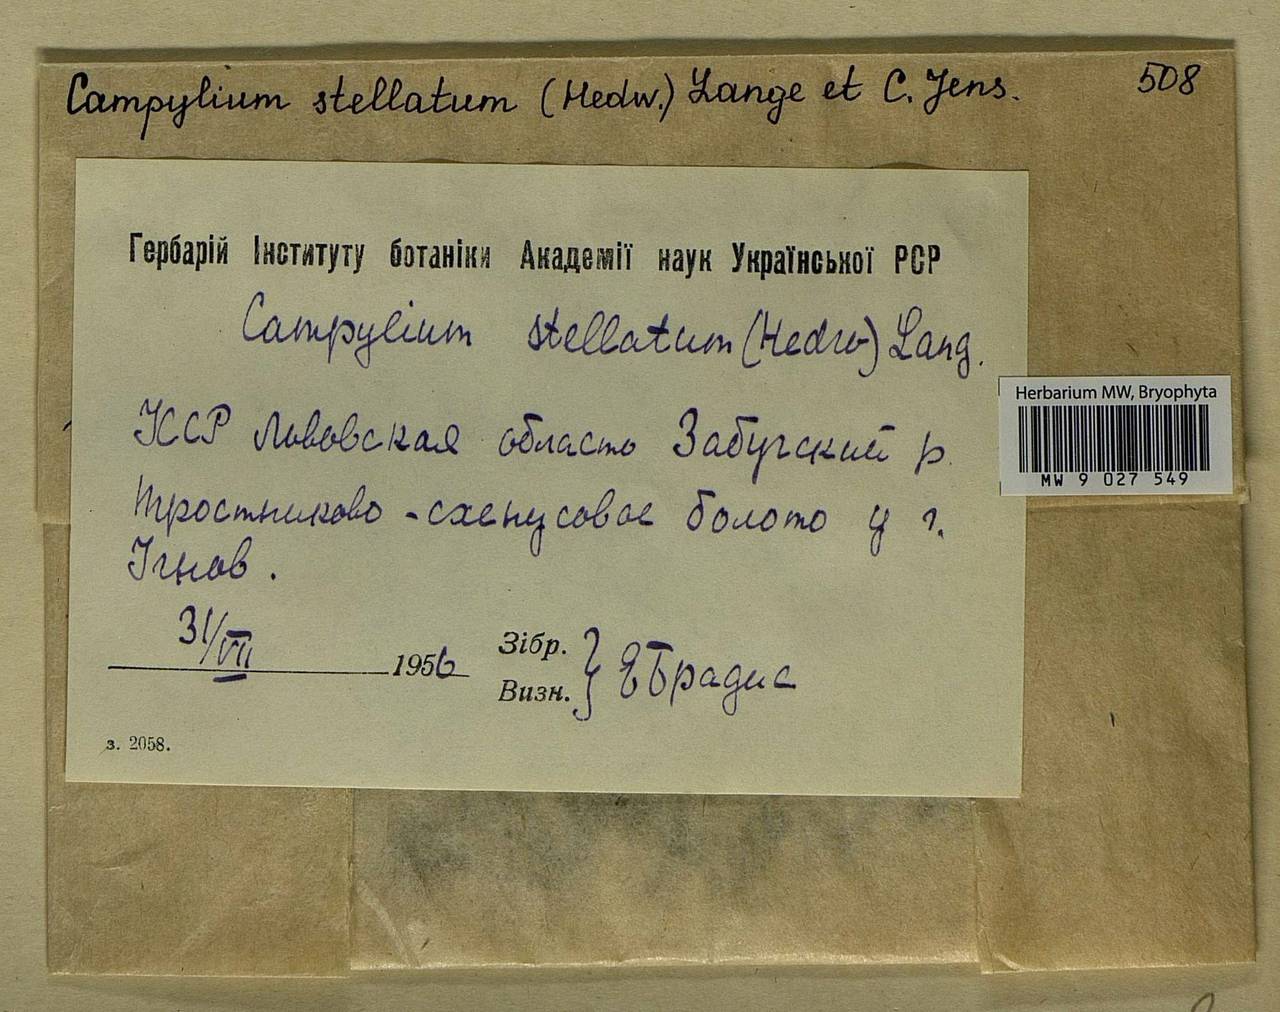 Campylium stellatum (Hedw.) Lange et C. Jens.
508
Гербарій Інституту ботаніки Академії наук Української РСР
Campylium stellatum (Hedw) Lang.
УССР Львовская область Забугский р.
Тростниково-схенусовое болото у г.
Угнов.
31/VII 1956
Зібр.
Визн. } Е Брадис
з. 2058.
Herbarium MW, Bryophyta
MW 9 027 549